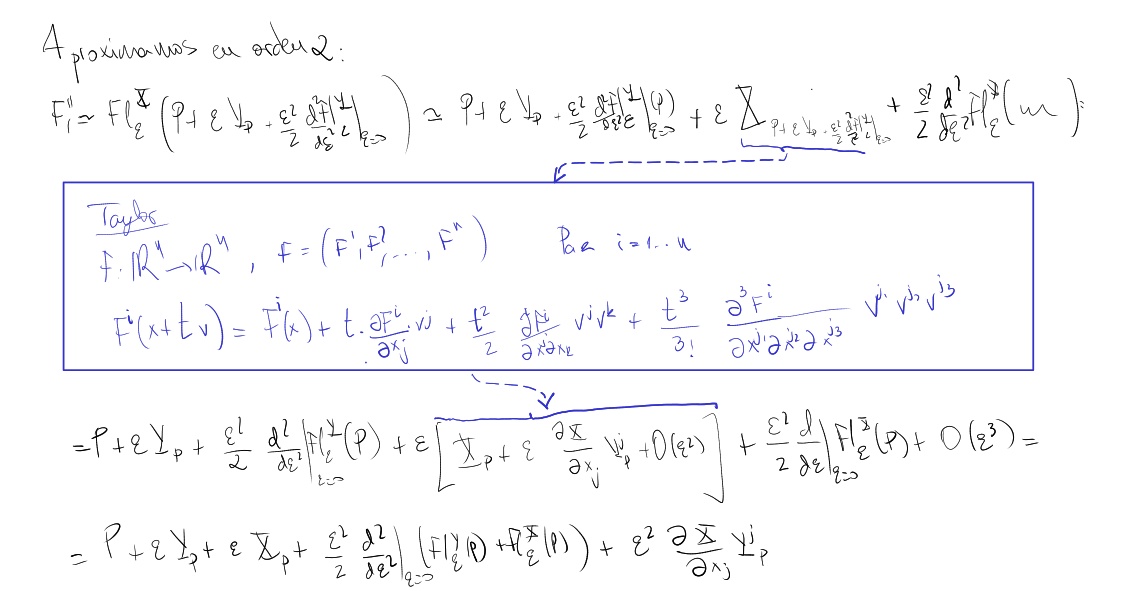 Aproximamos en orden 2:
F₁'' ≃ Fl_ε^X (P + ε Y_p + ε²/2 d²/dε² Fl^Y_ε |_{ε=0}) ≃ P + ε Y_p + ε²/2 d²/dε² Fl^Y_ε |_{ε=0} (P) + ε X_{P + ε Y_p + ε²/2 d²/dε² Fl^Y_ε |_{ε=0}} + ε²/2 d²/dε² Fl_ε^X (m) =
Taylor
F: ℝⁿ → ℝⁿ, F = (F¹, F², ..., Fⁿ) Para i=1...n
Fⁱ(x + t v) = Fⁱ(x) + t · ∂Fⁱ/∂x_j · v^j + t²/2 ∂Fⁱ/∂x^j∂x_k v^j v^k + t³/3! ∂³Fⁱ/∂x^{j₁}∂x^{j₂}∂x^{j₃} v^{j₁} v^{j₂} v^{j₃}
= P + ε Y_p + ε²/2 d²/dε² |_{ε=0} Fl_ε^Y (P) + ε [X_p + ε ∂X/∂x_j Y_p^j + O(ε²)] + ε²/2 d/dε |_{ε=0} Fl_ε^X (P) + O(ε³) =
= P + ε Y_p + ε X_p + ε²/2 d²/dε² |_{ε=0} (Fl_ε^Y (P) + Fl_ε^X (P)) + ε² ∂X/∂x_j Y_p^j